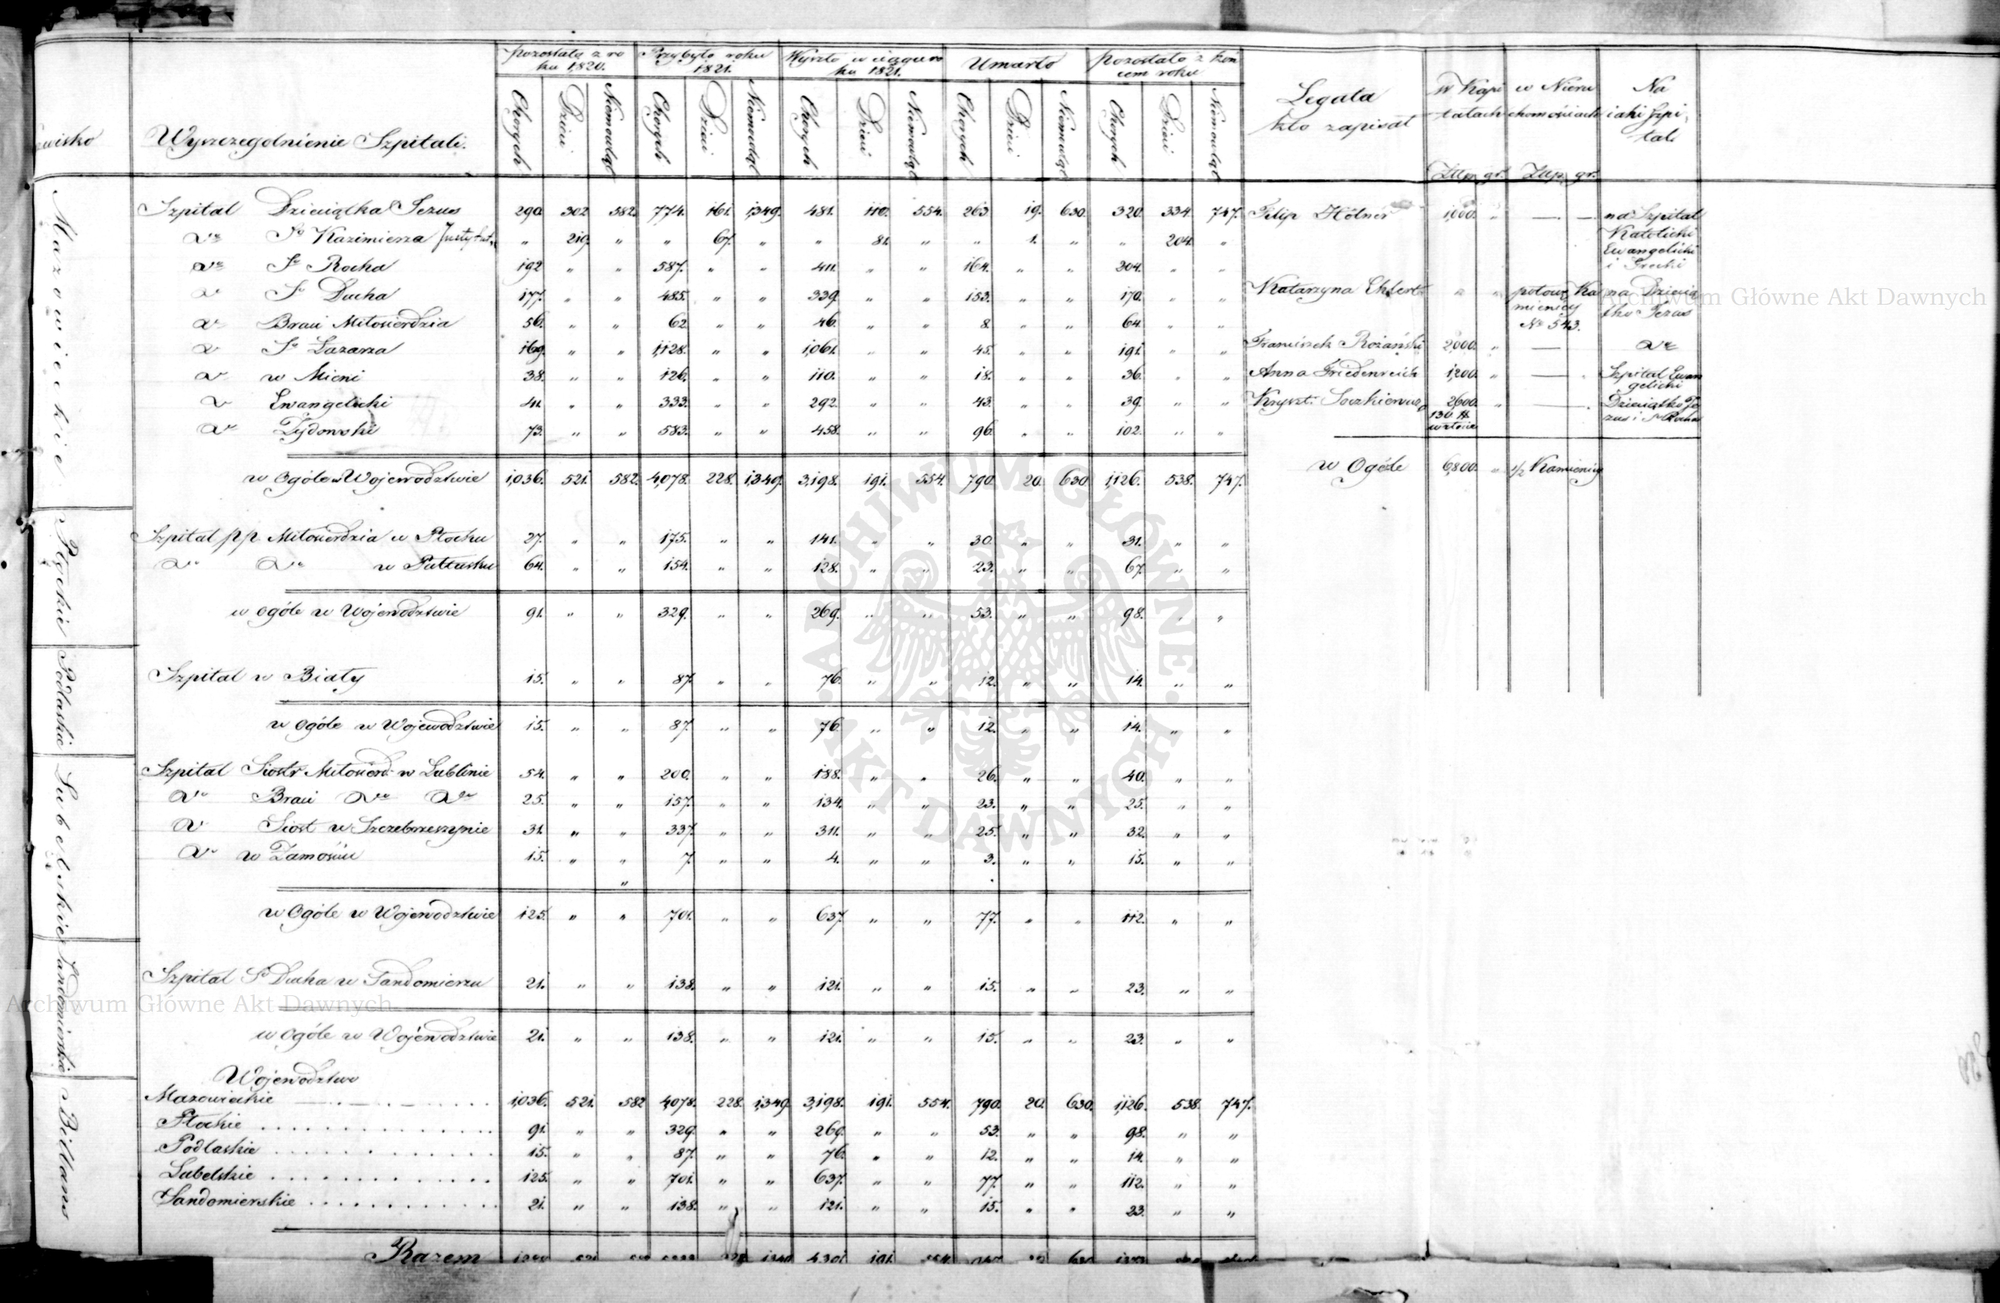 pozostało z ro | Przybyło roku | Wyszło w ciągu ro | Umarło | pozostało z koń
ku 1820. | 1821. | ku 1821. | cem roku
Wyszczególnienie Szpitali. | Chorych | Dzieci | Niemowląt | Chorych | Dzieci | Niemowląt | Chorych | Dzieci | Niemowląt | Chorych | Dzieci | Niemowląt | Chorych | Dzieci | Niemowląt | Legata kto zapisał | W Kapi tałach | w Nieru chomościach | Na iaki Szpi tal.
Złp. gr. | Złp. gr.
Mazowieckie
Szpital Dzieciątka Jezus 290. 302. 582. 774. 161. 1,349. 481. 110. 554. 263. 19. 630. 320. 334. 747. Filip Hötner 1,000. " — — na Szpital
Katolicki
Ewangelicki
i Grecki
do So Kazimierza " 219. " " 67. " " 81. " " 1. " " 204. "
do So Rocha 192 " " 587. " " 411. " " 164. " " 204. " "
do So Ducha 177. " " 485. " " 339. " " 153. " " 170. " " Katarzyna Ehlert " " połowę Ka na Dziecią
mienicy tko Jezus
No 543.
do Braci Miłosierdzia 56. " " 62. " " 46. " " 8. " " 64. " "
do So Łazarza 169. " " 1,128. " " 1,061. " " 45. " " 191. " " Franciszek Rożański 2,000. " — do
do w Mieni 38. " " 126. " " 110. " " 18. " " 36. " " Anna Friedenreich 1,200. " — Szpital Ewan
gelicki
do Ewangelicki 41. " " 333. " " 292. " " 43. " " 39. " " Kryszt. 2,600. " — Dzieciątko Je
zus i So Rocha
do Żydowski 73. " " 583. " " 458. " " 96. " " 102. " "
w Ogóle w Województwie 1,036. 521. 582. 4,078. 228. 1,349. 3,198. 191. 554. 790. 20. 630. 1,126. 538. 747. w Ogóle 6,800. " 1/2 Kamienicy
Płockie
Szpital pp Miłosierdzia w Płocku 27. " " 175. " " 141. " " 30. " " 31. " "
do do w Pułtusku 64. " " 154. " " 128. " " 23. " " 67. " "
w ogóle w Województwie 91. " " 329. " " 269. " " 53. " " 98. " "
Podlaskie
Szpital w Biały 15. " " 87. " " 76. " " 12. " " 14. " "
w ogóle w Województwie 15. " " 87. " " 76. " " 12. " " 14. " "
Lubelskie
Szpital Siostr Miłosierd w Lublinie 54. " " 200. " " 188. " " 26. " " 40. " "
do Braci do do 25. " " 157. " " 134. " " 23. " " 25. " "
do Siost w Szczebrzeszynie 31. " " 337. " " 311. " " 25. " " 32. " "
do w Zamościu 15. " " 7. " " 4. " " 3. " " 15. " "
w Ogóle w Województwie 125. " " 701. " " 637. " " 77. " " 112. " "
Sandomierskie
Szpital So Ducha w Sandomierzu 21. " " 138. " " 121. " " 15. " " 23. " "
w ogóle w Województwie 21. " " 138. " " 121. " " 15. " " 23. " "
Billans
Województwo
Mazowieckie 1,036. 521. 582 4,078. 228. 1,349. 3,198. 191. 554. 790. 20. 630. 1,126. 538. 747.
Płockie 91. " " 329. " " 269. " " 53. " " 98. " "
Podlaskie 15. " " 87. " " 76. " " 12. " " 14. " "
Lubelskie 125. " " 701. " " 637. " " 77. " " 112. " "
Sandomierskie 21. " " 138. " " 121. " " 15. " " 23. " "
Razem 521. 191. 554.
Archiwum Główne Akt Dawnych
Archiwum Główne Akt Dawnych
ARCHIWUM GŁÓWNE AKT DAWNYCH